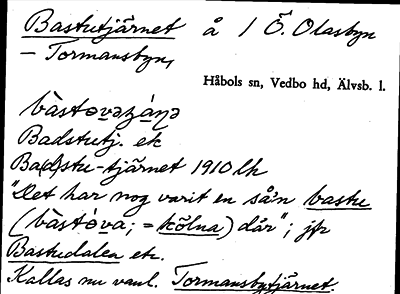 Bastutjärnet å 1 Ö. Olasbyn
– Tormansbyn,
Håbols sn, Vedbo hd, Älvsb. l.
Badstutj. ek
Ba(d)stu-tjärnet 1910 lk
"Det har nog varit en sån bastu
(bàstóva; = kölna) där"; jfr
Bastudalen etc.
Kallas nu vanl. Tormansbytjärnet.